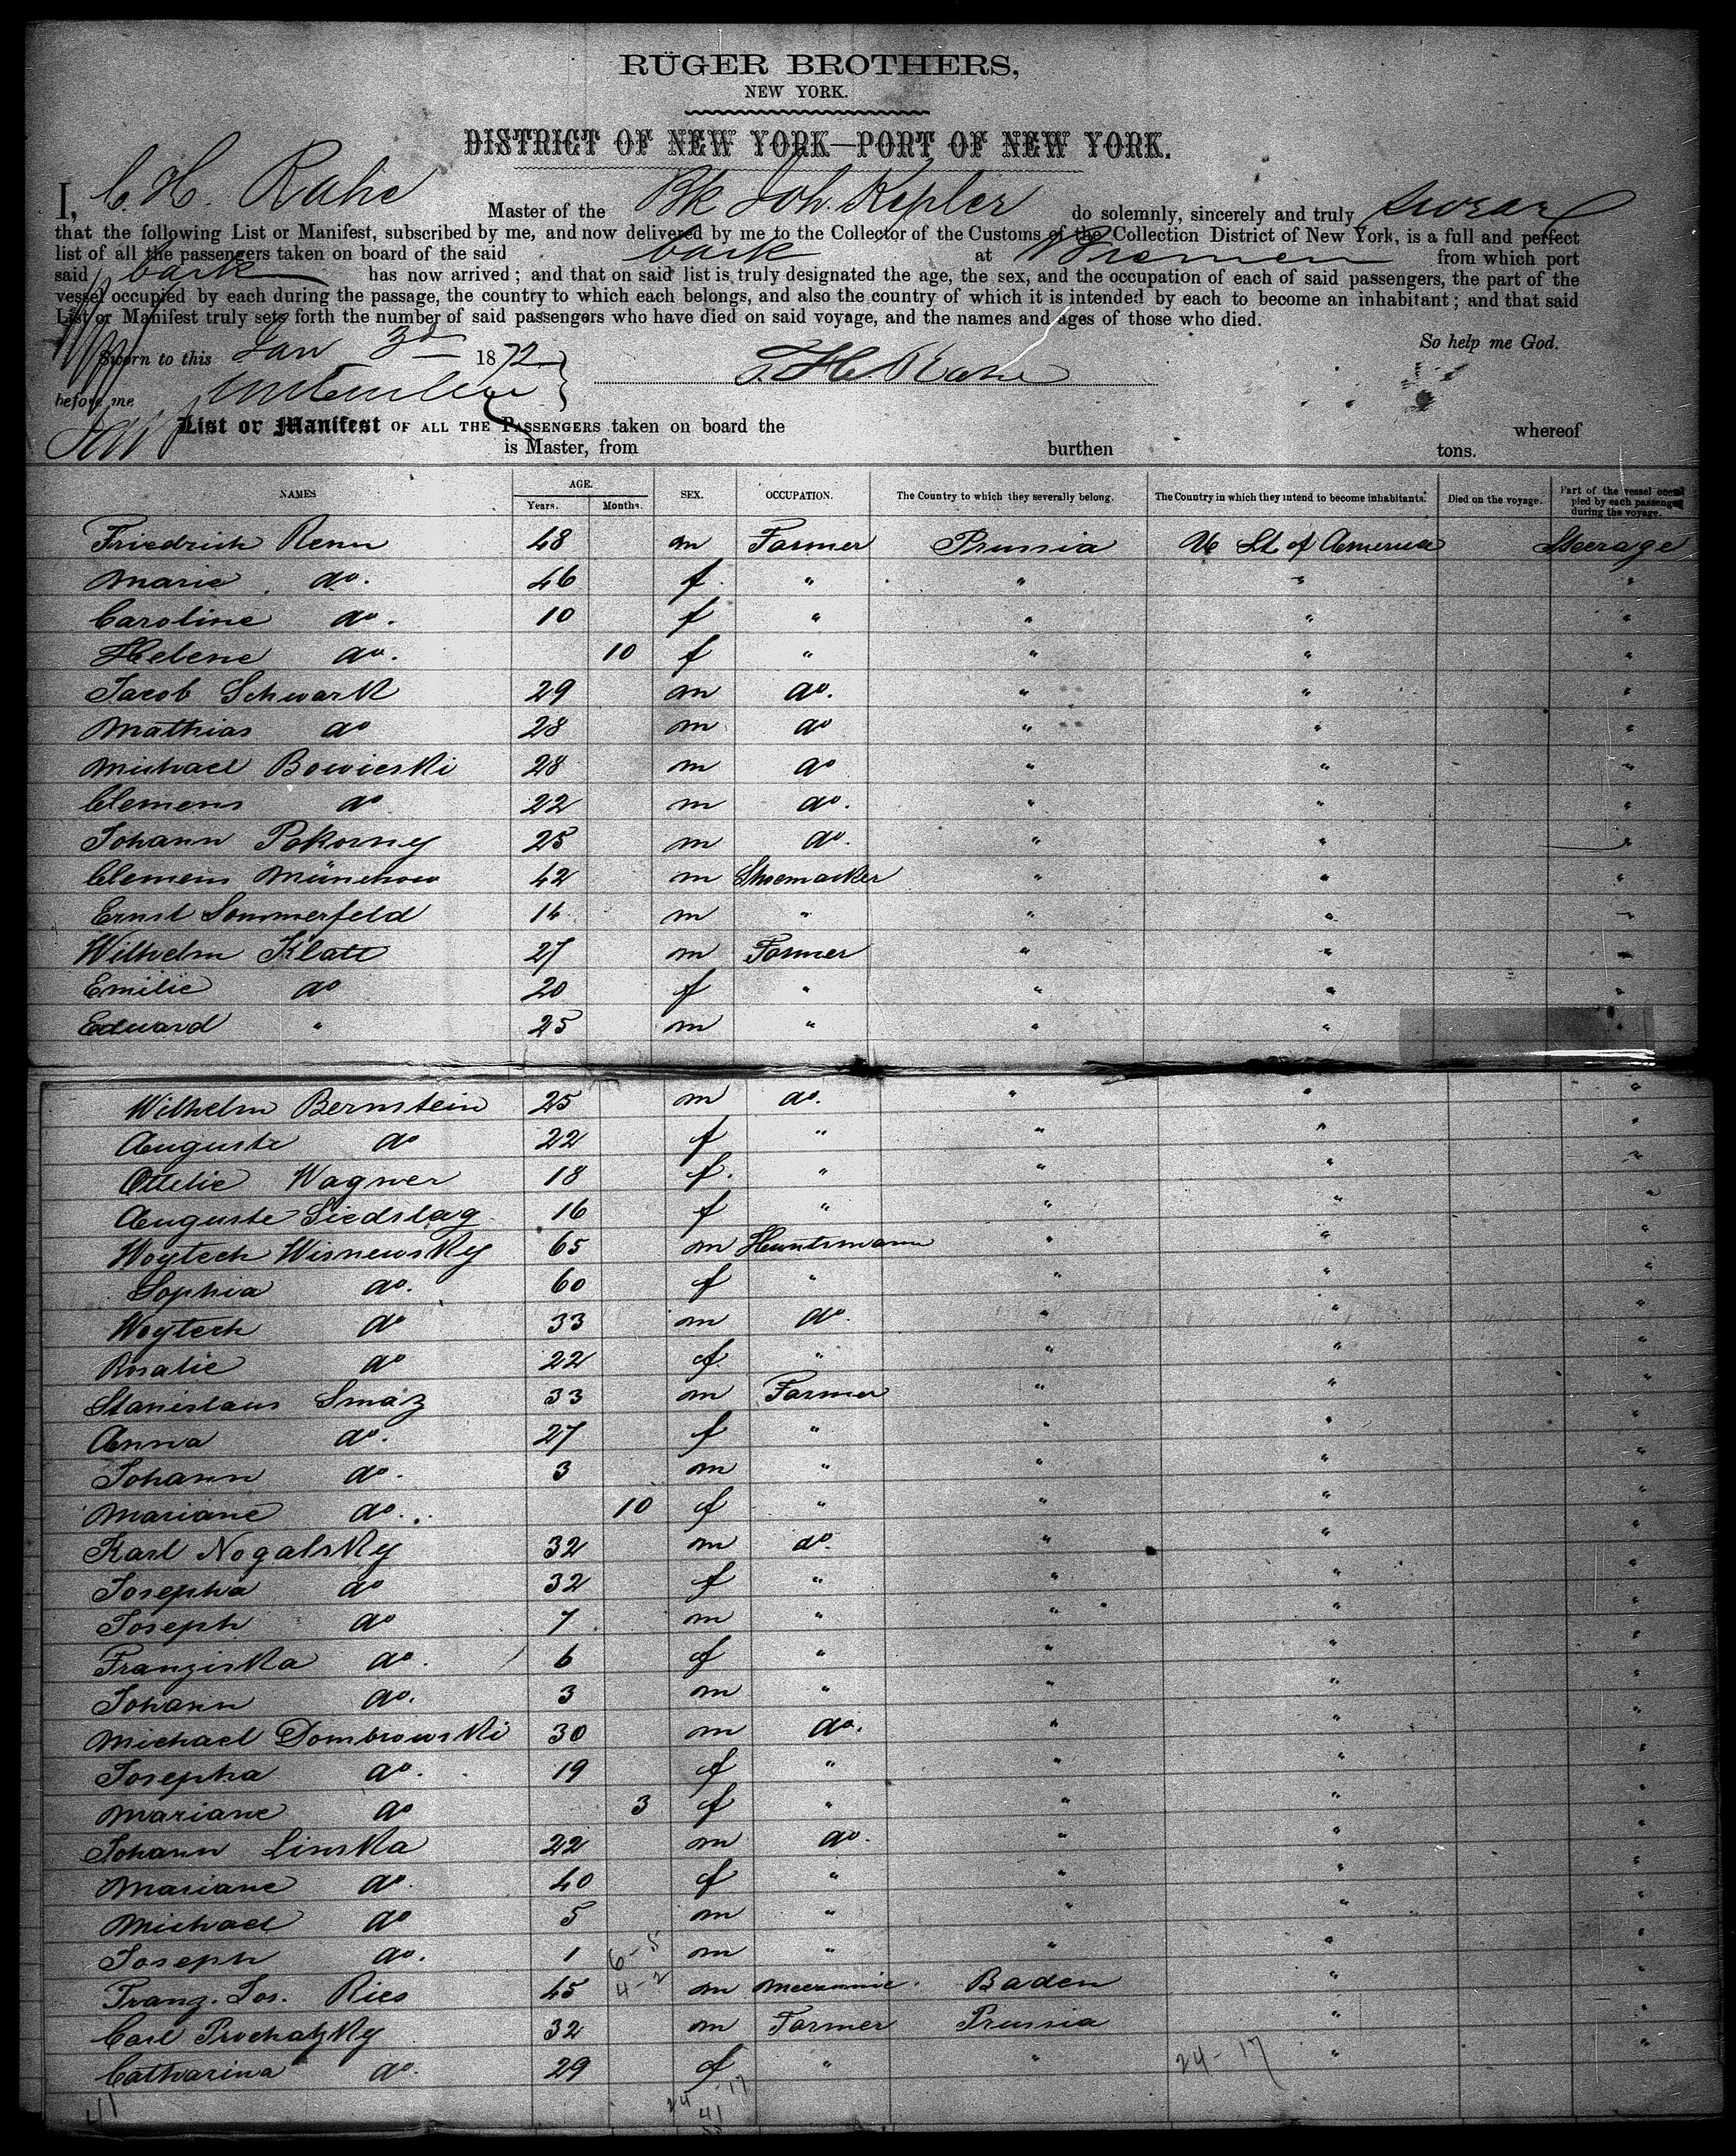 RÜGER BROTHERS,
NEW YORK.
DISTRICT OF NEW YORK—PORT OF NEW YORK.
I, C. H. Rahe Master of the Bk Joh. Kepler do solemnly, sincerely and truly swear
that the following List or Manifest, subscribed by me, and now delivered by me to the Collector of the Customs of the Collection District of New York, is a full and perfect
list of all the passengers taken on board of the said bark at Bremen from which port
said bark has now arrived; and that on said list is truly designated the age, the sex, and the occupation of each of said passengers, the part of the
vessel occupied by each during the passage, the country to which each belongs, and also the country of which it is intended by each to become an inhabitant; and that said
List or Manifest truly sets forth the number of said passengers who have died on said voyage, and the names and ages of those who died.
So help me God.
Sworn to this Jan 3d 1872
C. H. Rahe
before me
List or Manifest OF ALL THE PASSENGERS taken on board the whereof
is Master, from burthen tons.
NAMES AGE. Years. Months. SEX. OCCUPATION. The Country to which they severally belong. The Country in which they intend to become inhabitants. Died on the voyage. Part of the vessel occupied by each passenger during the voyage.
Friedrich Renn 48 m Farmer Prussia U St of America Steerage
Marie do. 46 f. " " " "
Caroline do. 10 f " " " "
Helene do. 10 f " " " "
Jacob Schwark 29 m do. " " "
Mathias do 28 m do " " "
Michael Bowieski 28 m do " " "
Clemens do 22 m do. " " "
Johann Pokorny 25 m do. " " "
Clemens Münchow 42 m Shoemacker " " "
Ernst Sommerfeld 14 m " " " "
Wilhelm Klatt 27 m Farmer " " "
Emilie do 20 f " " " "
Eduard " 25 m " " " "
Wilhelm Bernstein 25 m do. " " "
Auguste do 22 f " " " "
Ottilie Wagner 18 f. " " " "
Auguste Liedstag 16 f " " " "
Woytech Wisnewsky 65 m Huntsmann " " "
Sophia do. 60 f " " " "
Woytech do 33 m do. " " "
Rosalie do 22 f " " " "
Stanislaus Smaz 33 m Farmer " " "
Anna do. 27 f " " " "
Johann do. 3 m " " " "
Mariane do. 10 f " " " "
Karl Nogalsky 32 m do. " " "
Josepha do 32 f " " " "
Joseph do 7 m " " " "
Franziska do. 6 f " " " "
Johann do. 3 m " " " "
Michael Dombrowski 30 m do. " " "
Josepha do. 19 f " " " "
Mariane do 3 f " " " "
Johann Linska 22 m do. " " "
Mariane do. 40 f " " " "
Michael do 5 m " " " "
Joseph do. 1 6-5 m " " " "
Franz. Jos. Ries 45 4-2 m Mecannic. Baden " "
Carl Prochatzky 32 m Farmer Prussia " "
Catharina do. 29 f " " 24-17 " "
41 24 17
41